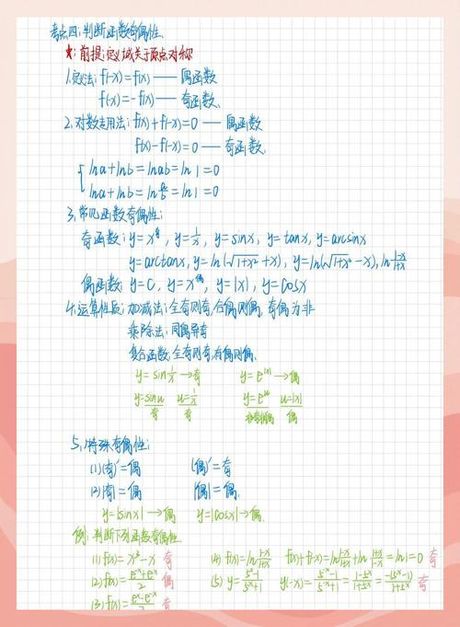 考点四:判断函数奇偶性.
★:前提:定义域关于原点对称
1.定义法:f(-x)=f(x) —— 偶函数
f(-x)=-f(x) —— 奇函数.
2.对数专用法:f(x)+f(-x)=0 —— 偶函数
f(x)-f(-x)=0 —— 奇函数.
{ lna+lnb=lnab=ln1=0
lna+lnb=ln a/b=ln1=0
3.常见函数奇偶性:
奇函数:y=x^奇, y=1/x, y=sinx, y=tanx, y=arcsinx
y=arctanx, y=ln(√1+x²+x), y=ln(√1+x²-x), ln 1-x/1+x
偶函数:y=C, y=x^偶, y=|x|, y=cosx
4.运算性质:加减法:全奇则奇,全偶则偶,奇偶为非
乘除法:同偶异奇
复合函数:全奇则奇,有偶则偶.
y=sin 1/x →奇 y=e^|x| →偶
y=sinu u=1/x y=e^u u=|x|
奇 奇 非奇非偶 偶
5.特殊奇偶性:
(1)(奇)'=偶 (偶)'=奇
(2)|奇|=偶 |偶|=偶.
y=|sinx| →偶 y=|cosx| →偶.
例:判断下列函数奇偶性
(1) f(x)=x³-x 奇 (4) f(x)=ln 1-x/1+x f(x)+f(-x)=ln 1-x/1+x+ln 1+x/1-x=ln1=0 奇
(2) f(x)=e^x+e^-x/2 偶 (5) y=5^x-1/5^x+1 y(-x)=5^-x-1/5^-x+1=1-5^x/1+5^x=-(5^x-1)/1+5^x 奇
(3) f(x)=e^x-e^-x/2 奇